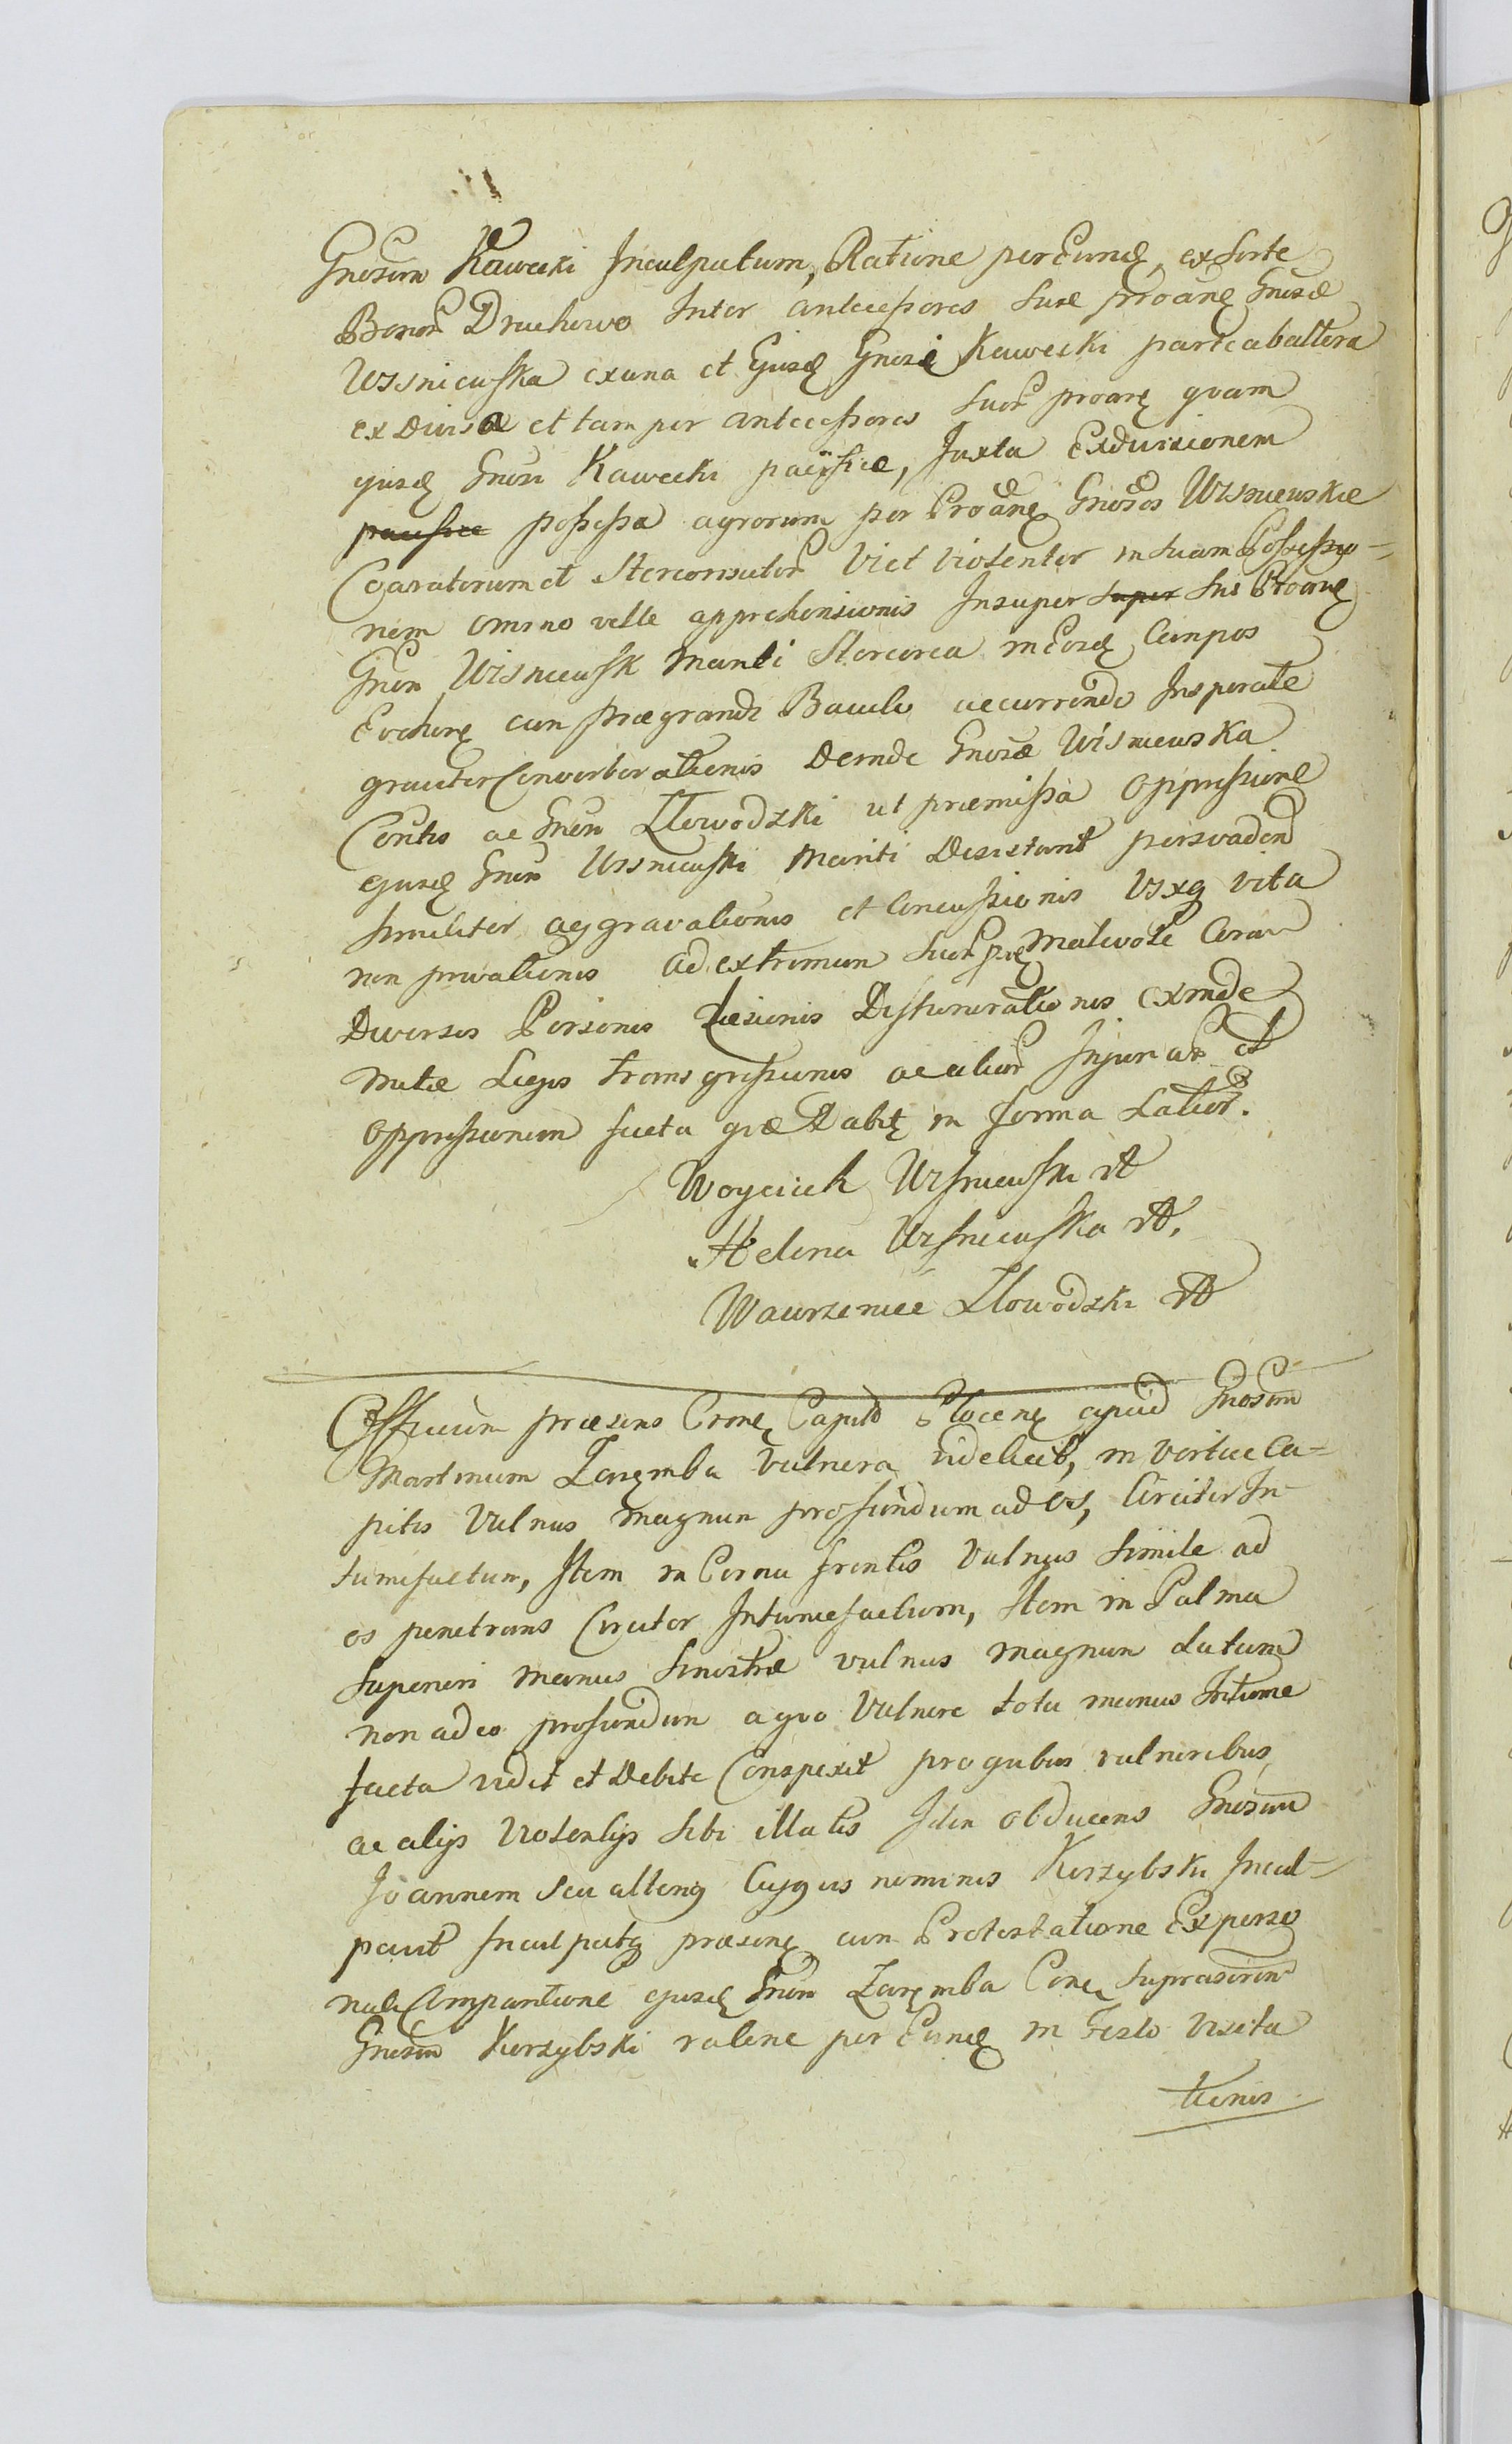 Gnosum Kawecki Inculpatum, Ratione per Eundę, ex sorte
Bonor Druchowo Inter antecessores suae proanę Gnosae
Wisniewska ex una et Ejusdę Gnosi Kawecki parte ab altera
ex Divisa et tam per antecessores suor proanę quam
ejusdę Gnosi Kawecki pacifice, Juxta Exdivisionem
pacifice possessa agrorum per Proanę Gnosos Wisniewskie
Coaratorum et Stercorisator Vi et violenter in suam Possessio=
nem omnino velle apprehensionis Insuper super sui Proanę
Gnon Wisniewsk Mariti Stercorea in Eosdę Campos
Evehenę cum praegrandi Baculo accurrendo Insperate
graviter Converberationis Deinde Gnosae Wisniewska
Contis ac Gnon Llowodzki ut praemissa oppressione
ejusdę Gnon Wisniewski Mariti Desistant persvadend
similiter aggravationis et Concussionis Vixq vita
non privationis ad extremum suor prę Malevole Coram
Diversis Personis Laesionis Dishonorationis exinde
multae Legis transgressionis ac alior Injuriar et
oppressionem facta quae Dabit in forma Latior.
Woyciech Wisniewski rt
Helena Wisniewska rt.
Wawrzeniec Llowodzki rt
Officium praesens Crone Capitło Plocenę apud Gnosum
Martinum Zaręmba Vulnera videlicet, in vertice Ca=
pitis Vulnus magnum profundum ad os, Circiter In=
tumefactum, Item in Cornu frontis Vulnus simile ad
os penetrans Circiter Intumefactum, Item in Palma
superiori manus sinistrae vulnus magnum datum
non adeo profundum a quo Vulnere tota manus Intume
facta vidit et Debite Conspexit pro quibus vulneribus
ac alijs violentijs sibi illatis Idem obducens Gnosum
Joannem seu alterius Cujus vis nominis Korzybski Incul=
pavit Inculpatq praesenę cum Protestatione Ex perso
nali Comparitione ejusdę Gnon Zaręmba Cone suprascrin
Gnosum Korzybski ratione per Eundę in Festo Visita
tionis